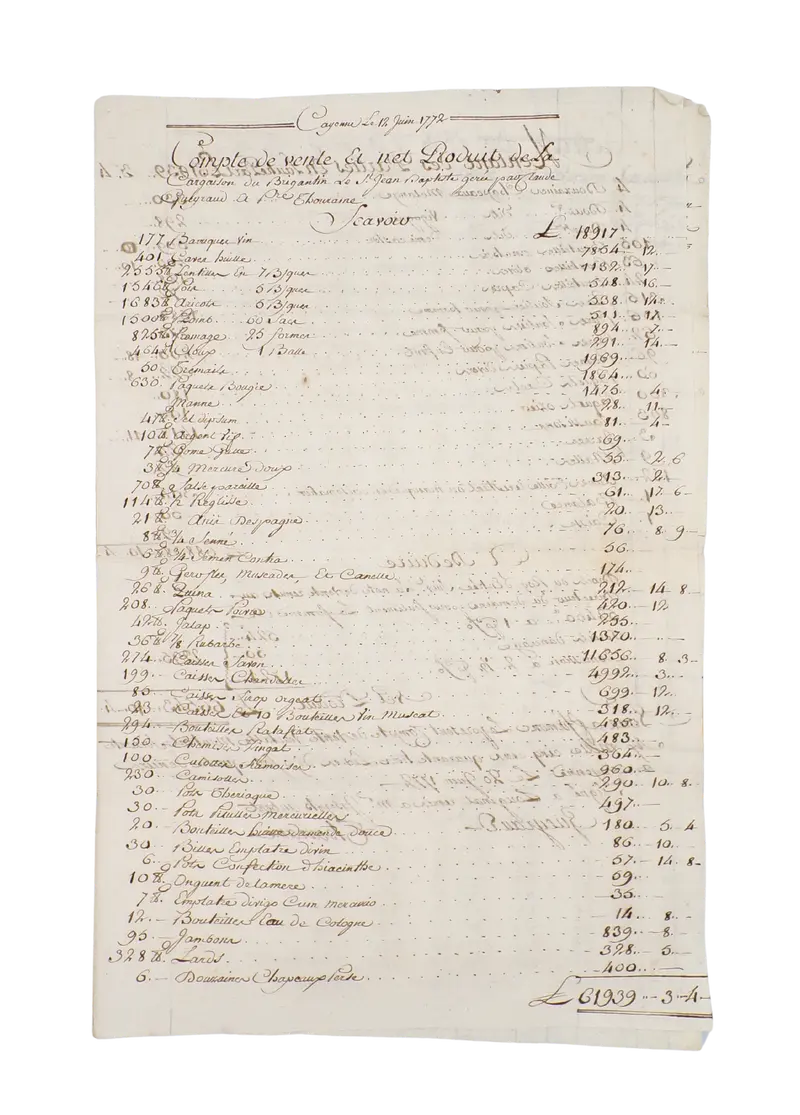 Cayenne Le 12 Juin 1772
Compte de vente Et net Produit de la
Cargaison du Brigantin Le St Jean Baptiste gerée par Claude
à Pre Thouraine
Scavoir
177 Bariques vin £ 18917
401 Cave huille 7854 12
2555 ℔ Lentilles En 7 B/ques 1132 17
1546 ℔ Pois 5 B/ques 548 16
1683 ℔ Aricots 5 B/ques 538 12
1500 ℔ 60 Sacs 511 17
825 ℔ fromage 25 formes 894 7
464 ℔ Cloux 1 Balle 291 14
50 Tremails 1969
630 Paquets Bougie 1864
Manne 1475 4
47 ℔ Sel depsum 28 11
110 ℔ Argent vif 81 4
7 ℔ Gome Gutte 69
3 ℔ 1/4 Mercure doux 55 2 6
70 ℔ Salse pareille 313 2
114 ℔ 1/2 Reglisse 61 17 6
21 ℔ Anis Despagne 20 13
8 ℔ 3/4 Senné 76 8 9
6 ℔ 3/4 Semen Contra 56
9 ℔ Gerofles Muscades Et Canelle 174
26 ℔ Quina 212 14 8
208 Paquets Poivre 420 12
42 ℔ Jalap 255
36 ℔ 7/8 Rubarbe 1370
274 Caisses Savon 11656 8 3
199 Caisses Chandelles 4992 3
80 Caisses Sirop orgeat 699 12
23 Caisses Et 10 Bouteilles Vin Muscat 318 12
294 Bouteilles Ratafiat 485
150 Chemises Gingat 483
100 Culottes Siamoises 364
230 Camisolles 960
30 Pots Theriaque 290 10 8
30 Pots Pilulles Mercurielles 497
20 Bouteilles huille damende douce 180 5 4
30 Billes Emplatre divin 86 10
6 Pots Confection d'hiacinthe 57 14 8
10 ℔ Onguent de lamere 69
7 ℔ Emplatre divigo Cum Mercurio 35
12 Bouteilles Eau de Cologne 14 8
95 Jambons 839 8
328 ℔ Lards 328 5
6 Douzaines Chapeaux 400
£ 61939 3 4